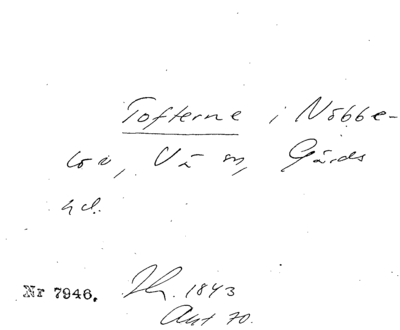 Tofterne i Nöbbe-
löv, Vä sn, Gärds
hd.
Nr 7946. Th. 1843
Akt 70.